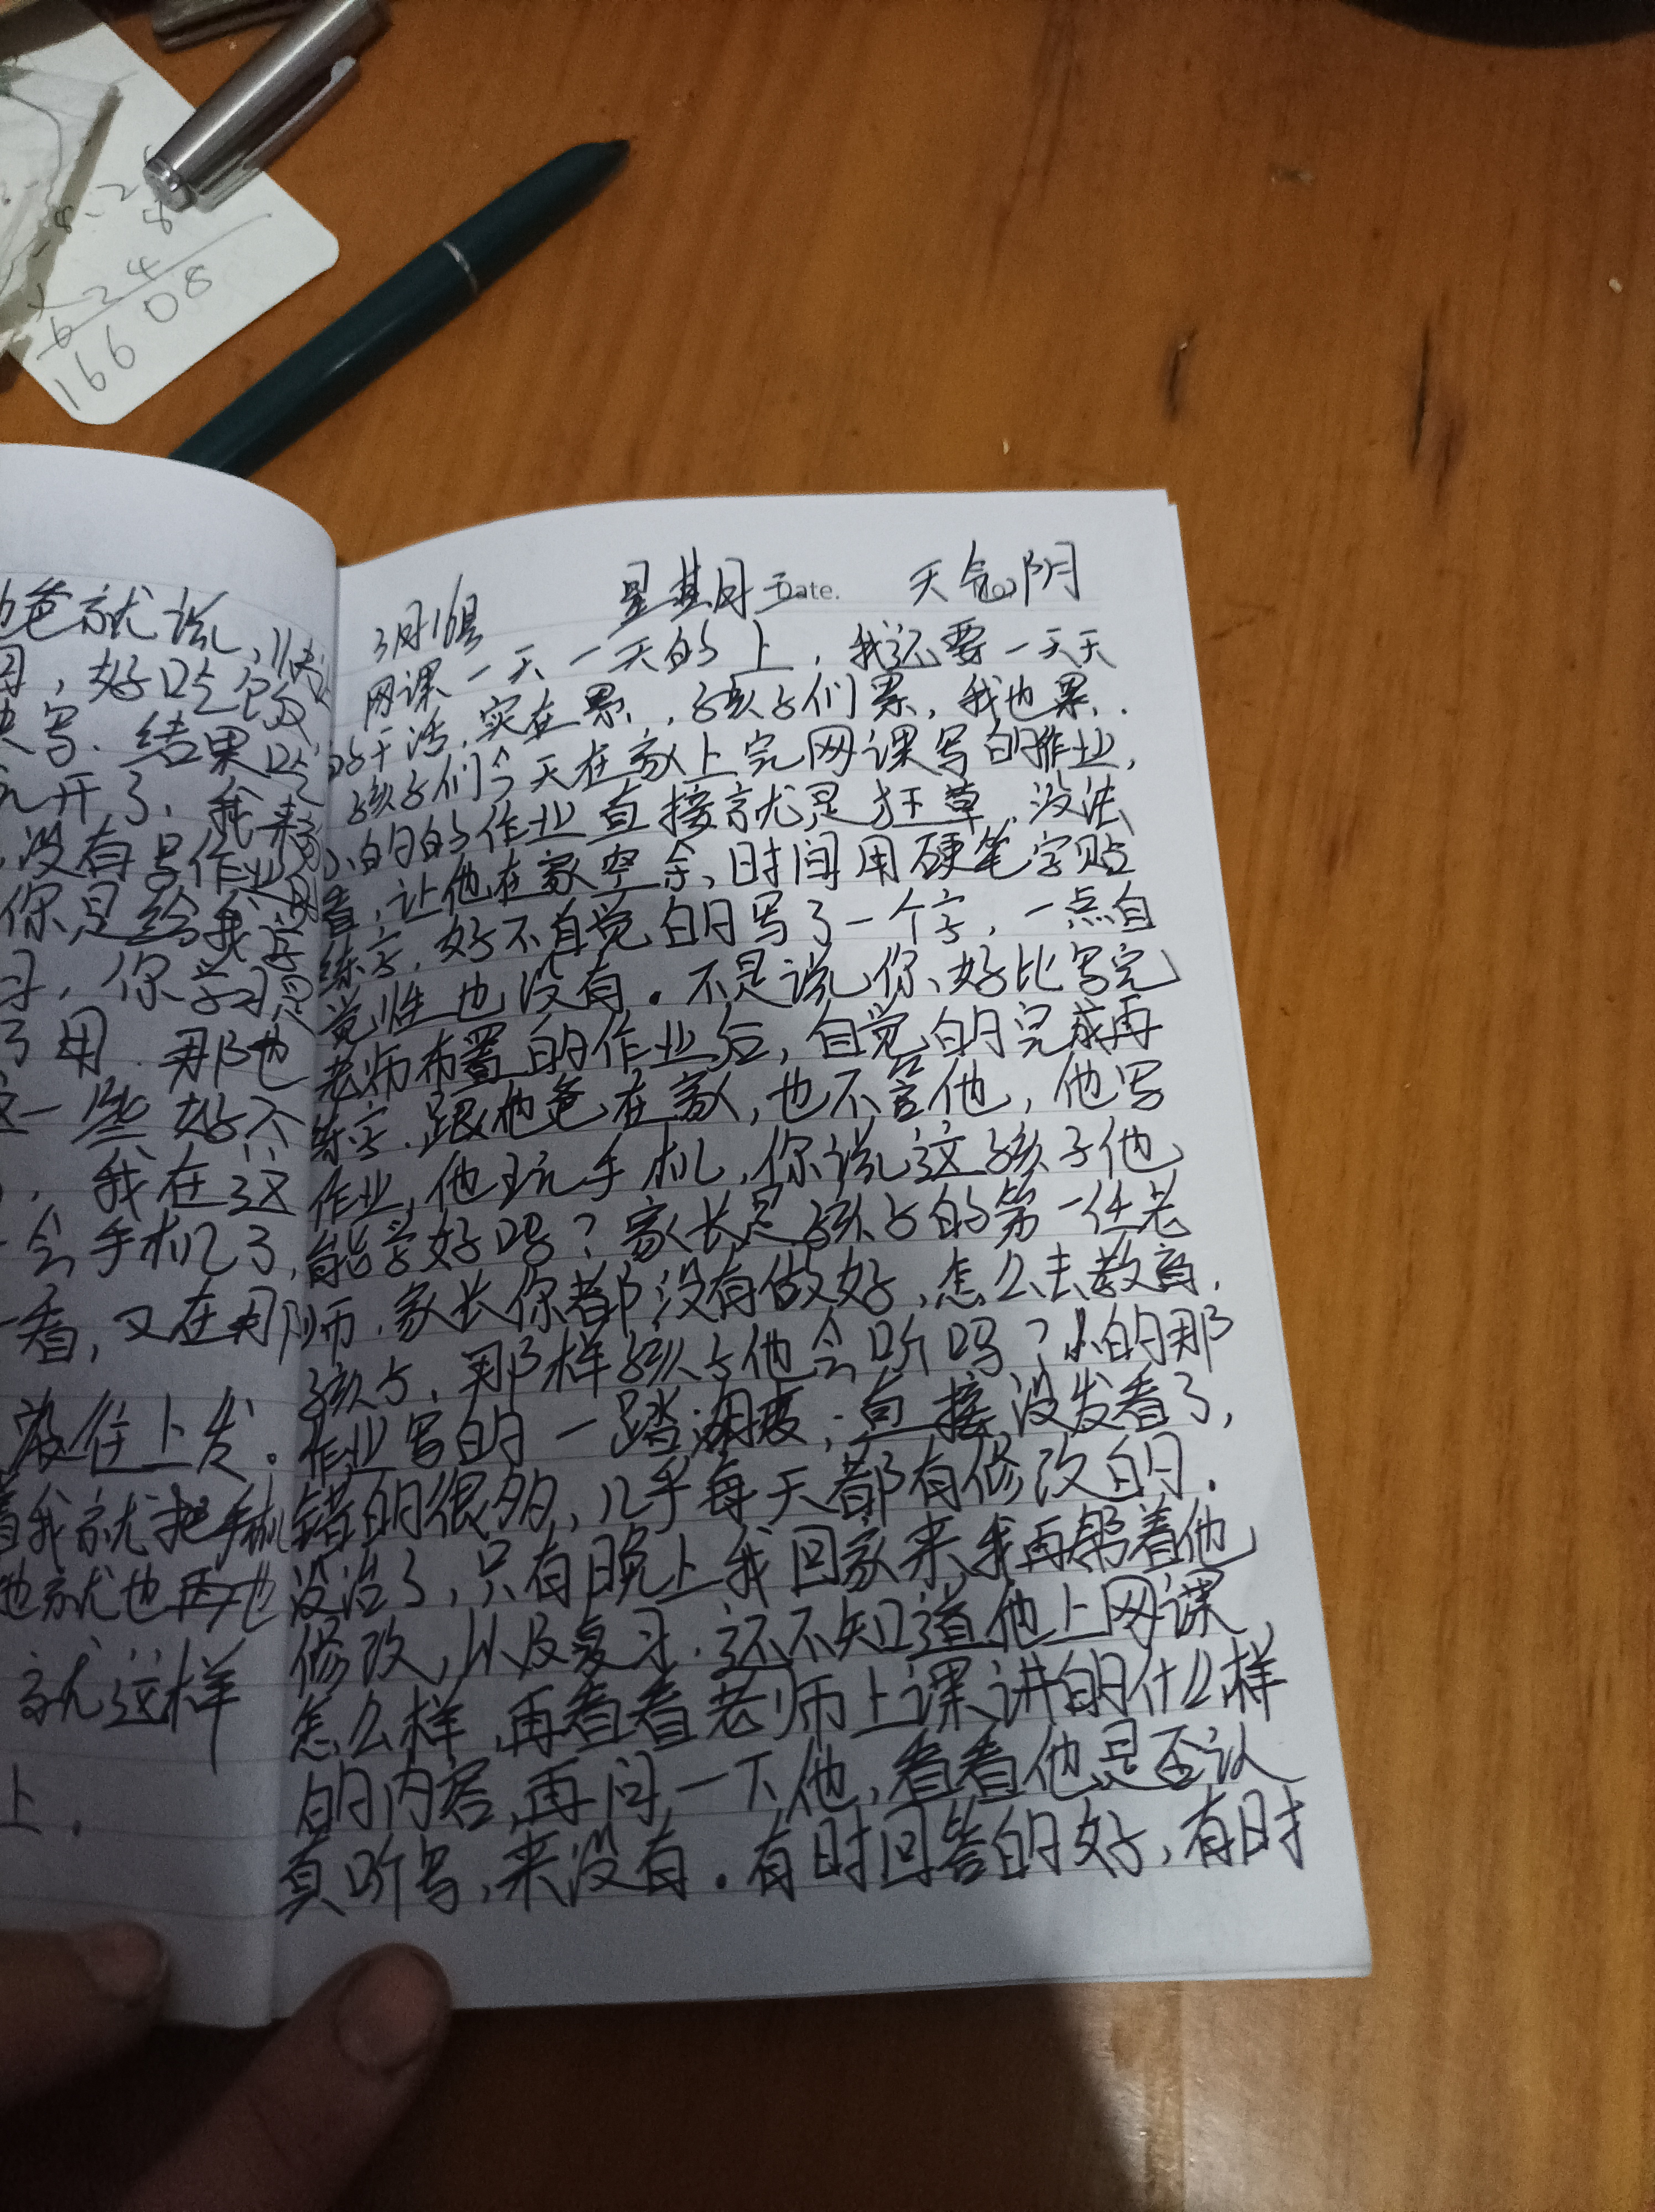 8
24
16608
也爸就说,
好吃饭
快写.结果吃
玩开了.我来
没有写作业
你是给我学
习,你学习是
了用.那也
这一些好不
.我在这
会手机了,
看,又在用
放往上发.
着我就把手机
他就也再也
就这样
上.
星期三 Date. 天气阴
网课一天一天的上,我还要一天天
的干活,实在累,孩子们累,我也累.
孩子们今天在家上完网课写的作业,
小的的作业直接就是狂草.没法
看,让他在家空余,时间用硬笔字贴
练字.好不自觉的写了一个字,一点自
觉性也没有.不是说你、好比写完
老师布置的作业后,自觉的完成再
练字.跟他爸在家,也不管他,他写
作业,他玩手机,你说这孩子他
能学好吗?家长是孩子的第一任老
师.家长你都没有做好,怎么去教育.
孩子,那样孩子他会听吗?小的那
作业写的一踏糊度;直接没发看了,
错的很多,几乎每天都有修改的.
没治了,只有晚上我回家来,我再帮着他
修改,以及复习.还不知道他上网课
怎么样,再看看老师上课讲的什么样
的内容,再问一下他,看看他是否认
真听写,来没有.有时回答的好,有时